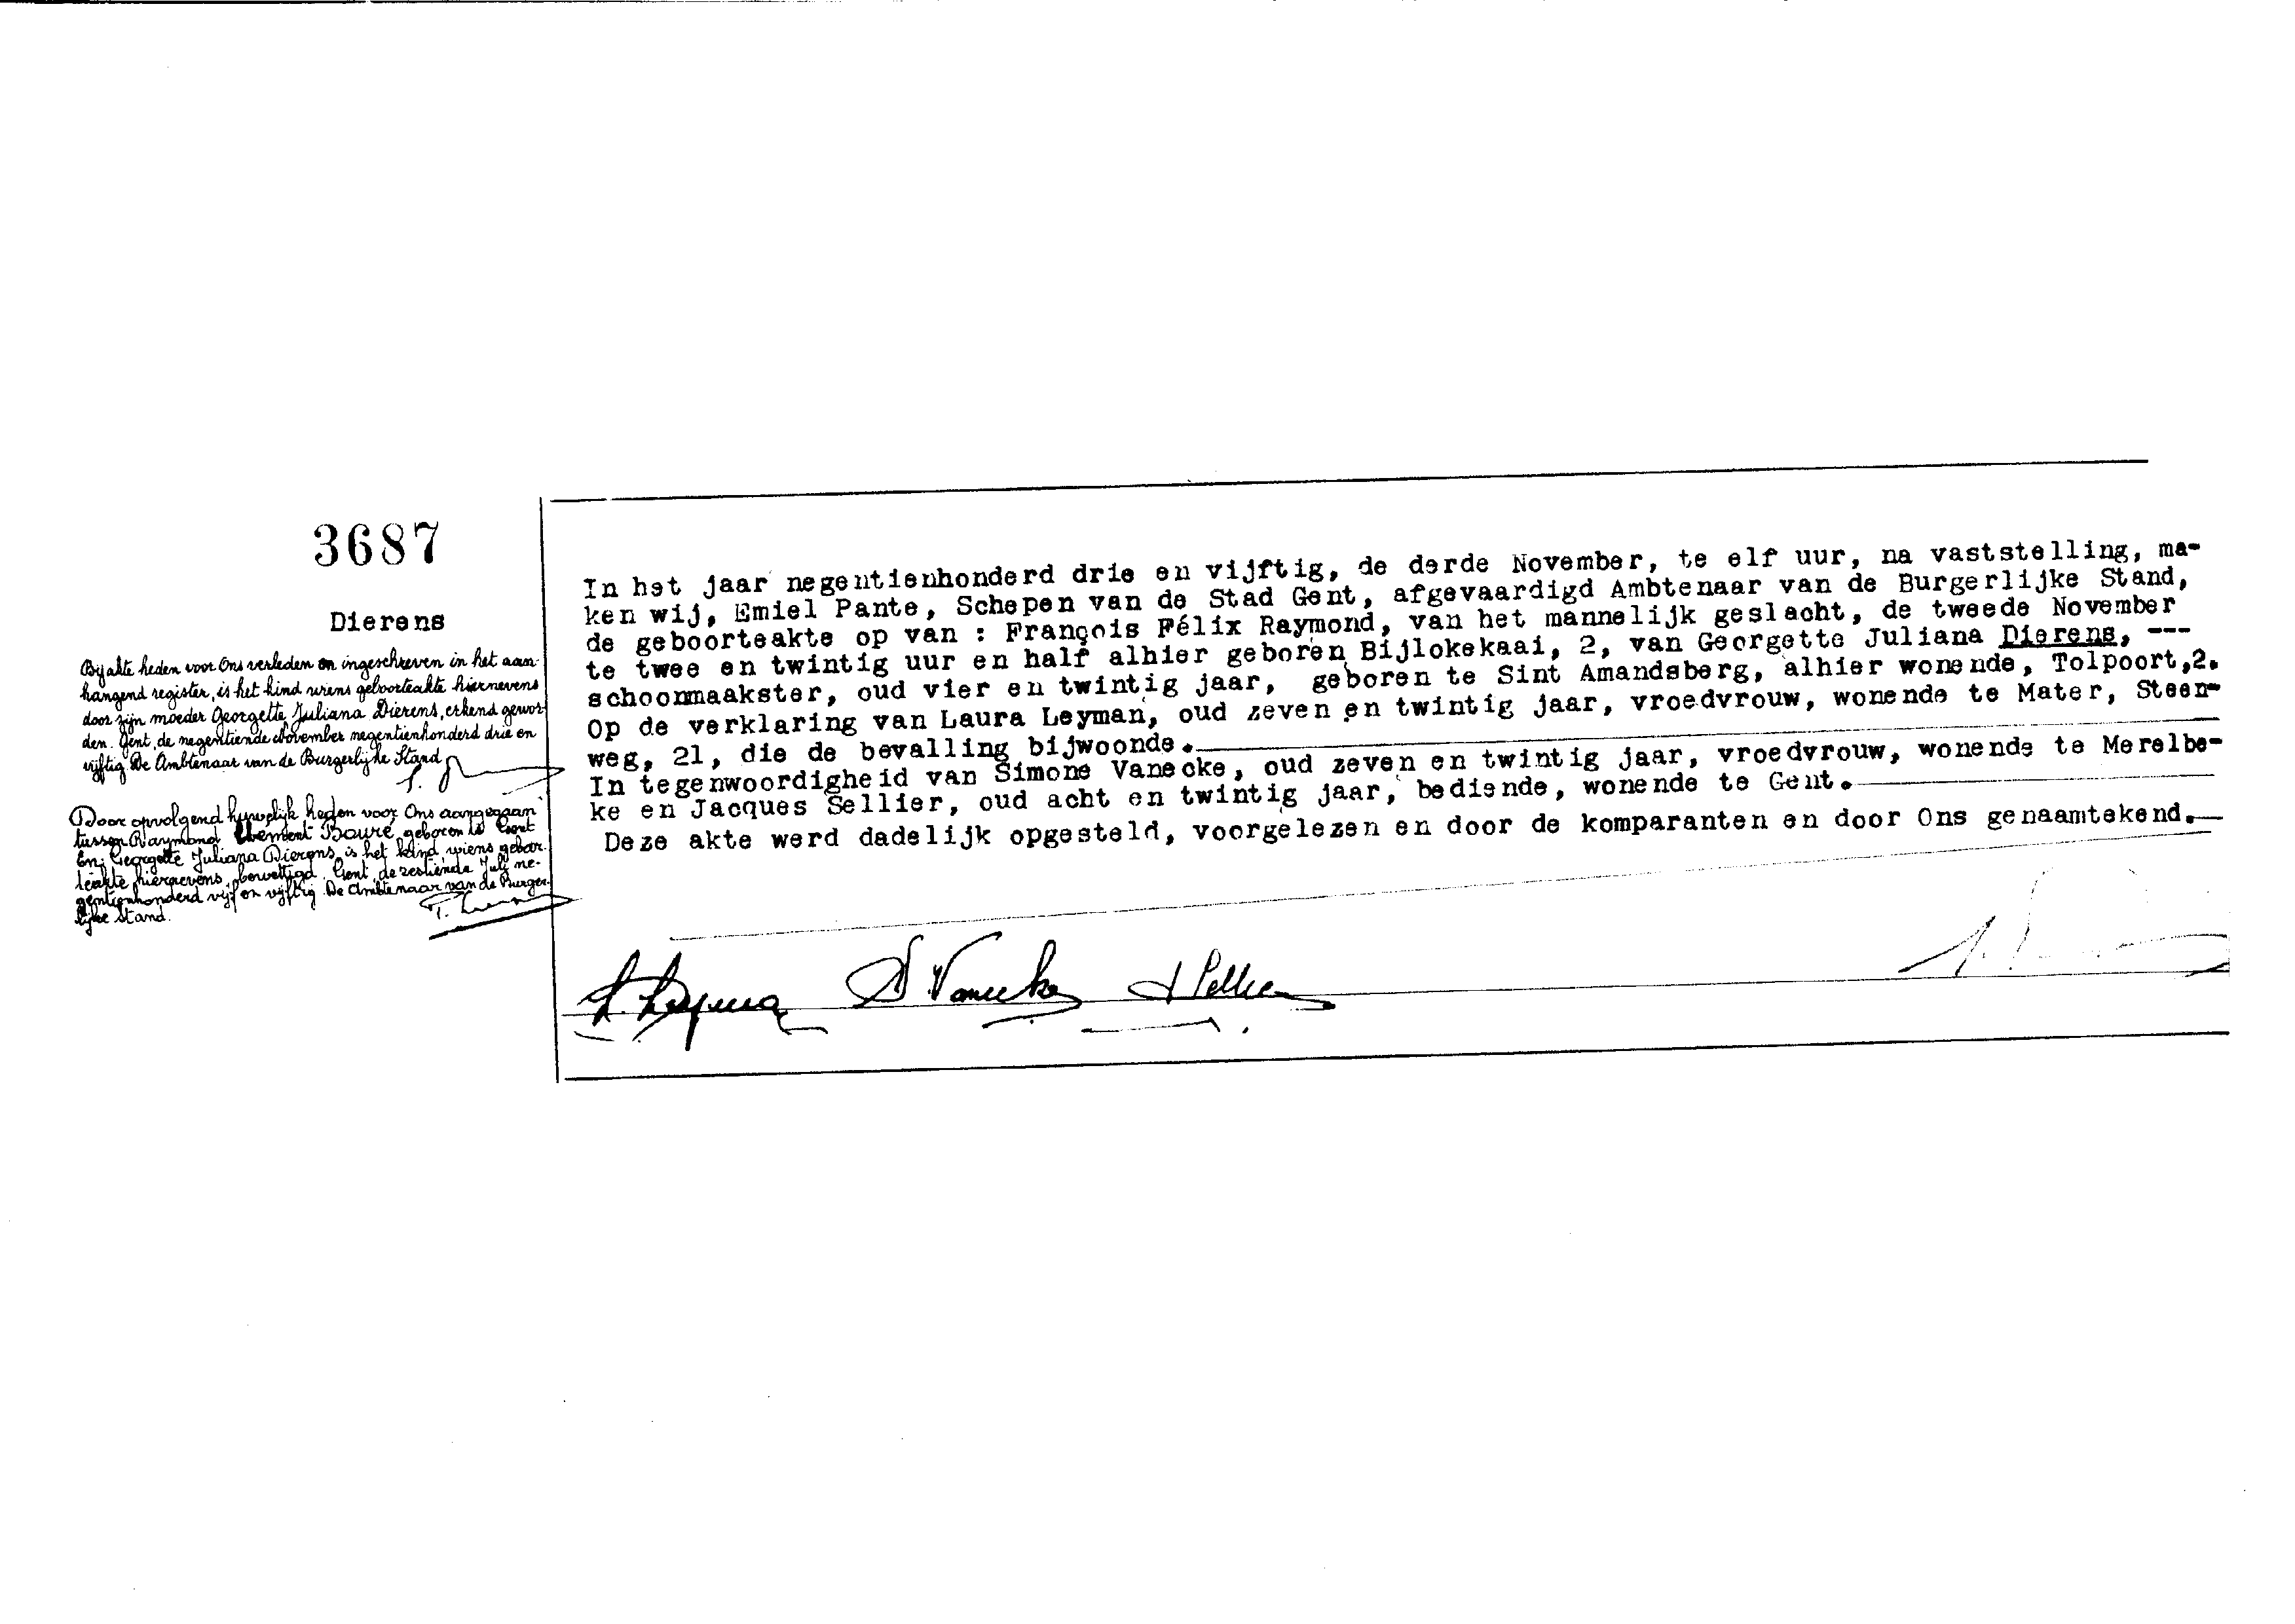 3687
Dierens
Bij akte heden voor Ons verleden en ingeschreven in het aan-
hangend register, is het kind wiens geboorteakte hiernevens
door zijn moeder Georgette Juliana Dierens, erkend gewor-
den. Gent, de negentiende November negentienhonderd drie en
vijftig De Ambtenaar van de Burgerlijke Stand
Door opvolgend huwelijk heden voor Ons aangegaan
tussen Raymond Clement Bauré geboren te Gent
En: Georgette Juliana Dierens is het kind wiens geboor-
teakte hiernevens, gewettigd. Gent, de zestiende Juli ne-
gentienhonderd vijf en vijftig De Ambtenaar van de Burger-
lijke Stand.
In het jaar negentienhonderd drie en vijftig, de derde November, te elf uur, na vaststelling, ma-
ken wij, Emiel Pante, Schepen van de Stad Gent, afgevaardigd Ambtenaar van de Burgerlijke Stand,
de geboorteakte op van : François Félix Raymond, van het mannelijk geslacht, de tweede November
te twee en twintig uur en half alhier geboren Bijlokekaai, 2, van Georgette Juliana Dierens, ---
schoonmaakster, oud vier en twintig jaar, geboren te Sint Amandsberg, alhier wonende, Tolpoort,2.
Op de verklaring van Laura Leyman, oud zeven en twintig jaar, vroedvrouw, wonende te Mater, Steen-
weg, 21, die de bevalling bijwoonde.
In tegenwoordigheid van Simone Vanecke, oud zeven en twintig jaar, vroedvrouw, wonende te Merelbe-
ke en Jacques Sellier, oud acht en twintig jaar, bediende, wonende te Gent.
Deze akte werd dadelijk opgesteld, voorgelezen en door de komparanten en door Ons genaamtekend.